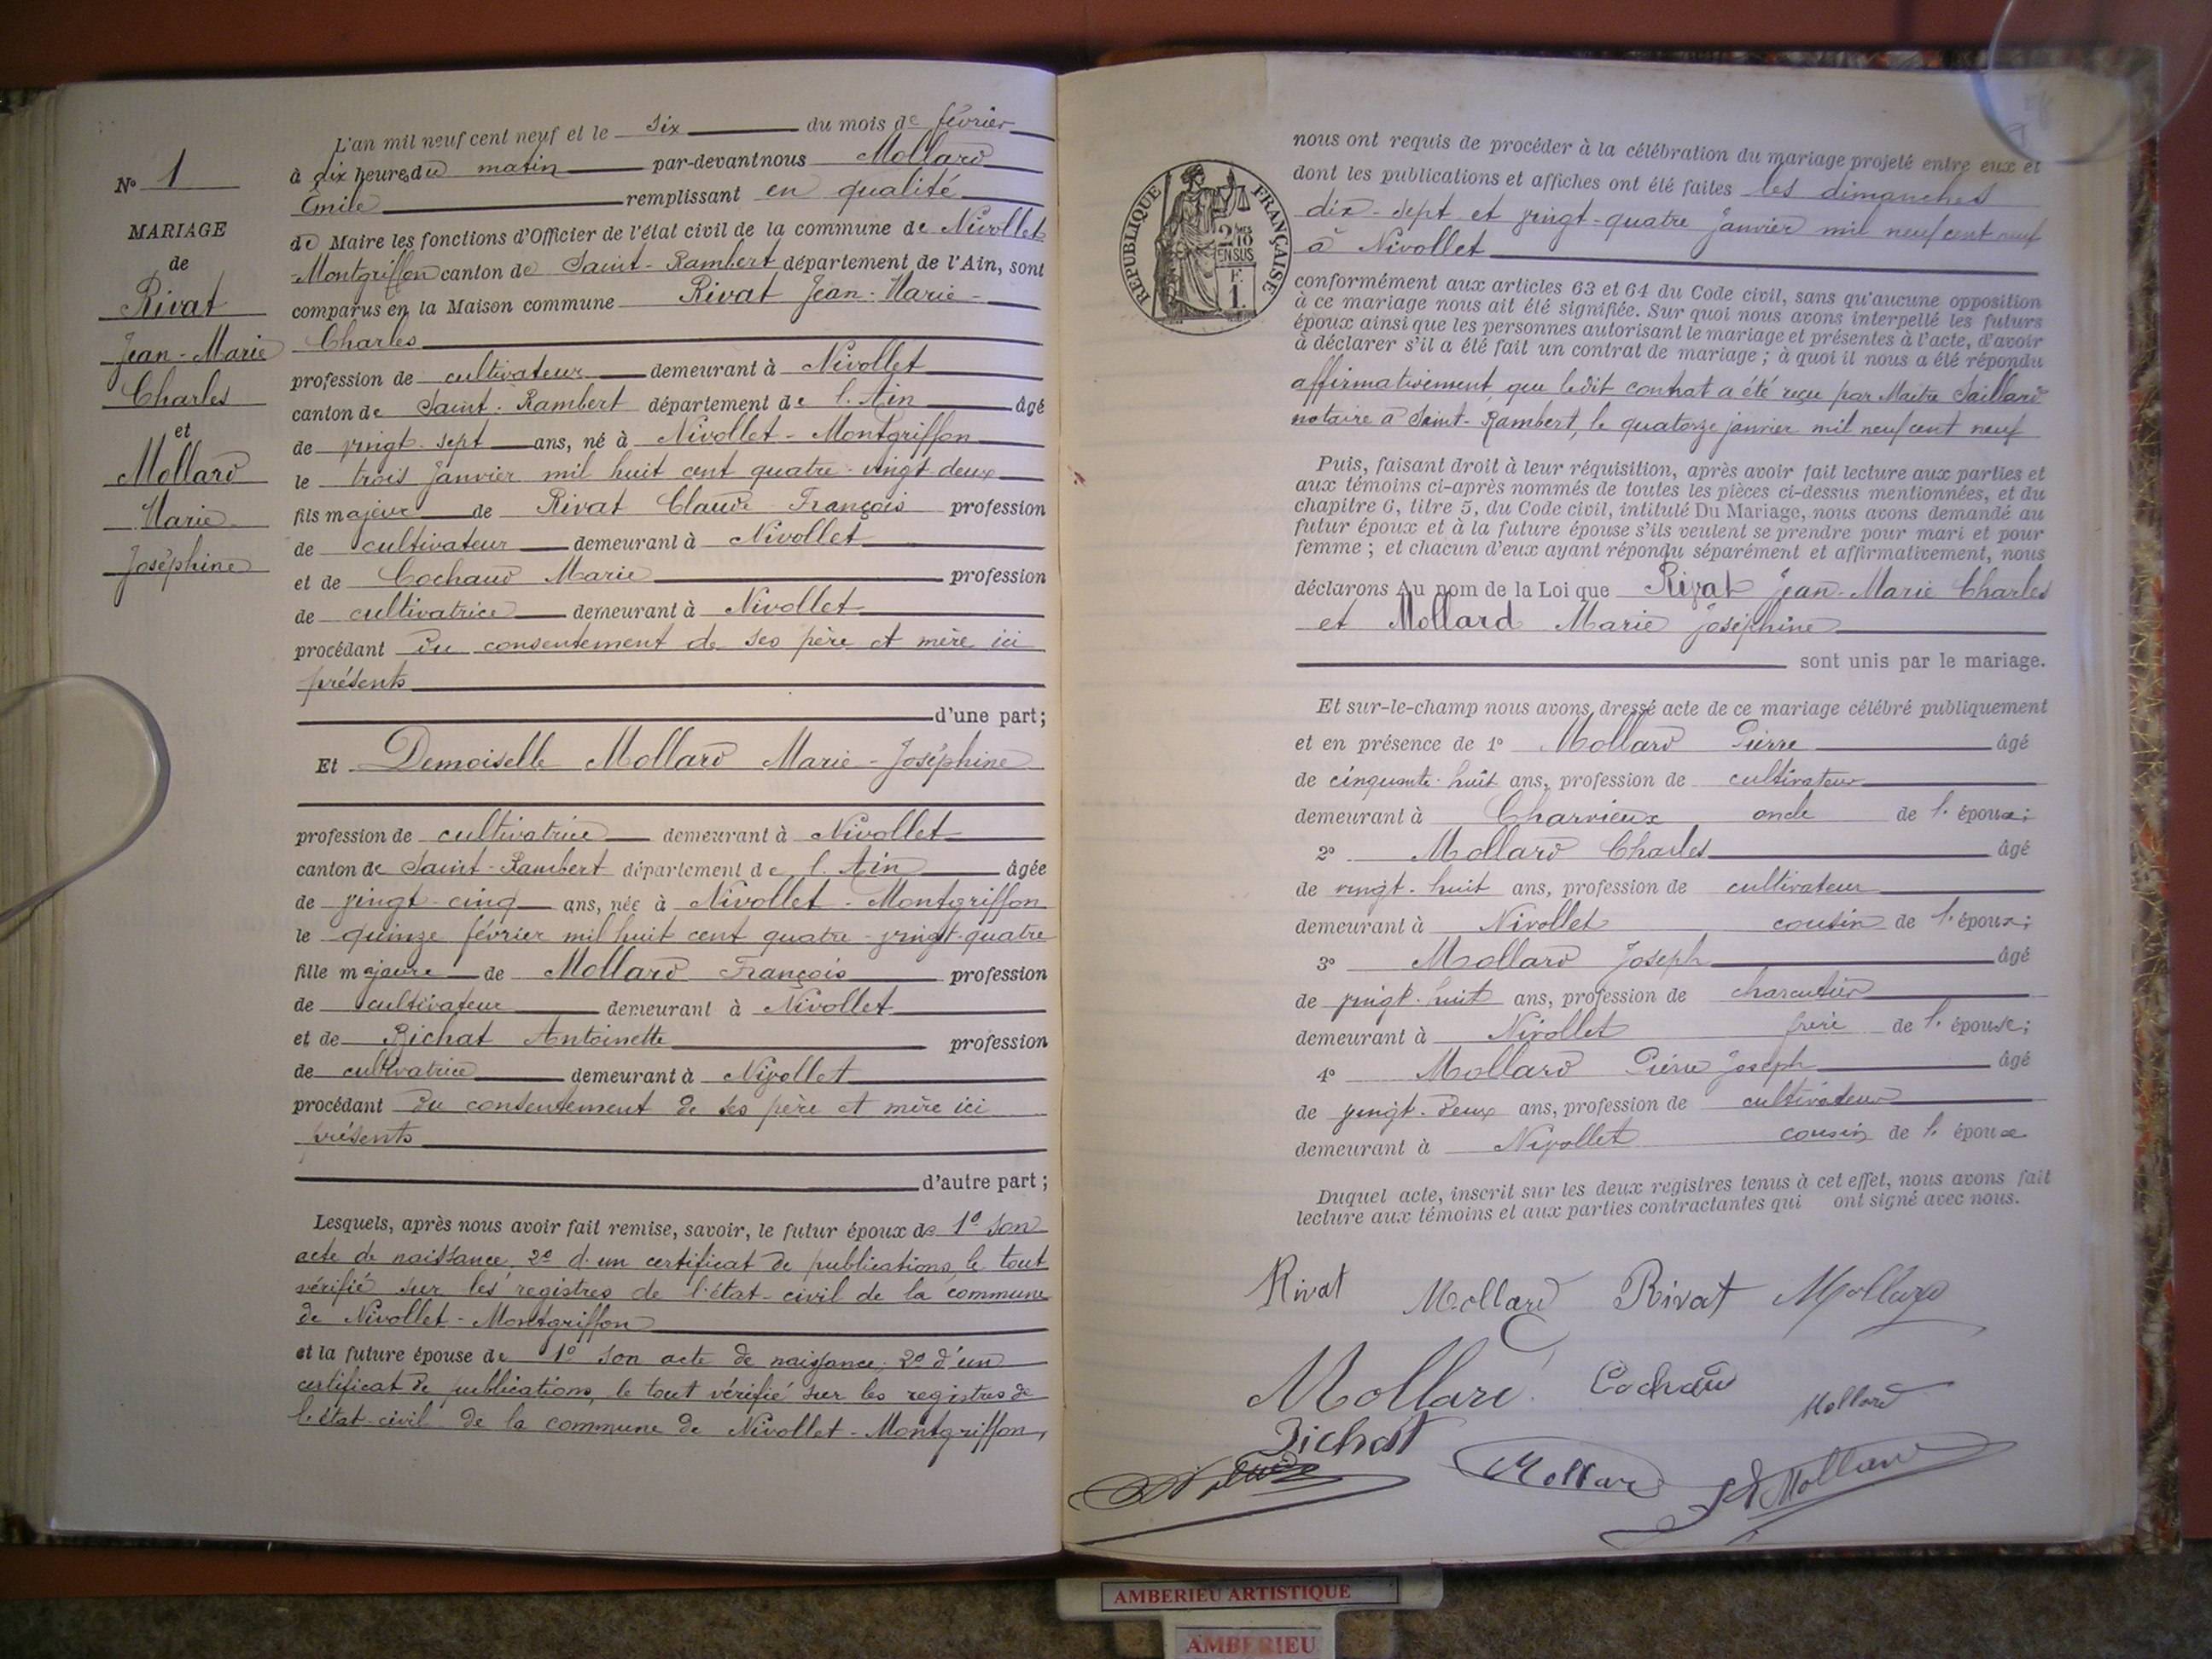 N° 1
MARIAGE
de
Rivat
Jean-Marie
Charles
et
Mollard
Marie
Joséphine
L'an mil neuf cent neuf et le six du mois de février
à dix heures du matin par-devant nous Mollard
Emile remplissant en qualité
de Maire les fonctions d'Officier de l'état civil de la commune de Nivollet
-Montgriffon canton de Saint-Rambert département de l'Ain, sont
comparus en la Maison commune Rivat Jean-Marie-
Charles
profession de cultivateur demeurant à Nivollet
canton de Saint-Rambert département de l'Ain âgé
de vingt-sept ans, né à Nivollet-Montgriffon
le trois janvier mil huit cent quatre-vingt-deux
fils majeur de Rivat Claude François profession
de cultivateur demeurant à Nivollet
et de Cochaud Marie profession
de cultivatrice demeurant à Nivollet
procédant du consentement de ses père et mère ici
présents
d'une part;
Et Demoiselle Mollard Marie-Joséphine
profession de cultivatrice demeurant à Nivollet
canton de Saint-Rambert département de l'Ain âgée
de vingt-cinq ans, née à Nivollet-Montgriffon
le quinze février mil huit cent quatre-vingt-quatre
fille majeure de Mollard François profession
de cultivateur demeurant à Nivollet
et de Richat Antoinette profession
de cultivatrice demeurant à Nivollet
procédant du consentement de ses père et mère ici
présents
d'autre part;
Lesquels, après nous avoir fait remise, savoir, le futur époux de 1° son
acte de naissance, 2° d'un certificat de publications, le tout
vérifié sur les registres de l'état-civil de la commune
de Nivollet-Montgriffon
et la future épouse de 1° son acte de naissance; 2° d'un
certificat de publications, le tout vérifié sur les registres de
l'état-civil de la commune de Nivollet-Montgriffon,
REPUBLIQUE FRANÇAISE
2 MES
10
EN SUS
F.
1.
nous ont requis de procéder à la célébration du mariage projeté entre eux et
dont les publications et affiches ont été faites les dimanches
dix-sept et vingt-quatre janvier mil neuf cent neuf
à Nivollet
conformément aux articles 63 et 64 du Code civil, sans qu'aucune opposition
à ce mariage nous ait été signifiée. Sur quoi nous avons interpellé les futurs
époux ainsi que les personnes autorisant le mariage et présentes à l'acte, d'avoir
à déclarer s'il a été fait un contrat de mariage; à quoi il nous a été répondu
affirmativement, que ledit contrat a été reçu par Maître Saillard
notaire à Saint-Rambert, le quatorze janvier mil neuf cent neuf
Puis, faisant droit à leur réquisition, après avoir fait lecture aux parties et
aux témoins ci-après nommés de toutes les pièces ci-dessus mentionnées, et du
chapitre 6, titre 5, du Code civil, intitulé Du Mariage, nous avons demandé au
futur époux et à la future épouse s'ils veulent se prendre pour mari et pour
femme; et chacun d'eux ayant répondu séparément et affirmativement, nous
déclarons Au nom de la Loi que Rivat Jean-Marie Charles
et Mollard Marie Joséphine
sont unis par le mariage.
Et sur-le-champ nous avons dressé acte de ce mariage célébré publiquement
et en présence de 1° Mollard Pierre âgé
de cinquante-huit ans, profession de cultivateur
demeurant à Charvieux oncle de l'époux;
2° Mollard Charles âgé
de vingt-huit ans, profession de cultivateur
demeurant à Nivollet cousin de l'époux;
3° Mollard Joseph âgé
de vingt-huit ans, profession de charcutier
demeurant à Nivollet frère de l'épouse;
4° Mollard Pierre Joseph âgé
de vingt-deux ans, profession de cultivateur
demeurant à Nivollet cousin de l'épouse
Duquel acte, inscrit sur les deux registres tenus à cet effet, nous avons fait
lecture aux témoins et aux parties contractantes qui ont signé avec nous.
Rivat Mollard Rivat Mollard
Mollard Cochaud Mollard
Richat
Mollard Mollard
AMBERIEU ARTISTIQUE
AMBERIEU